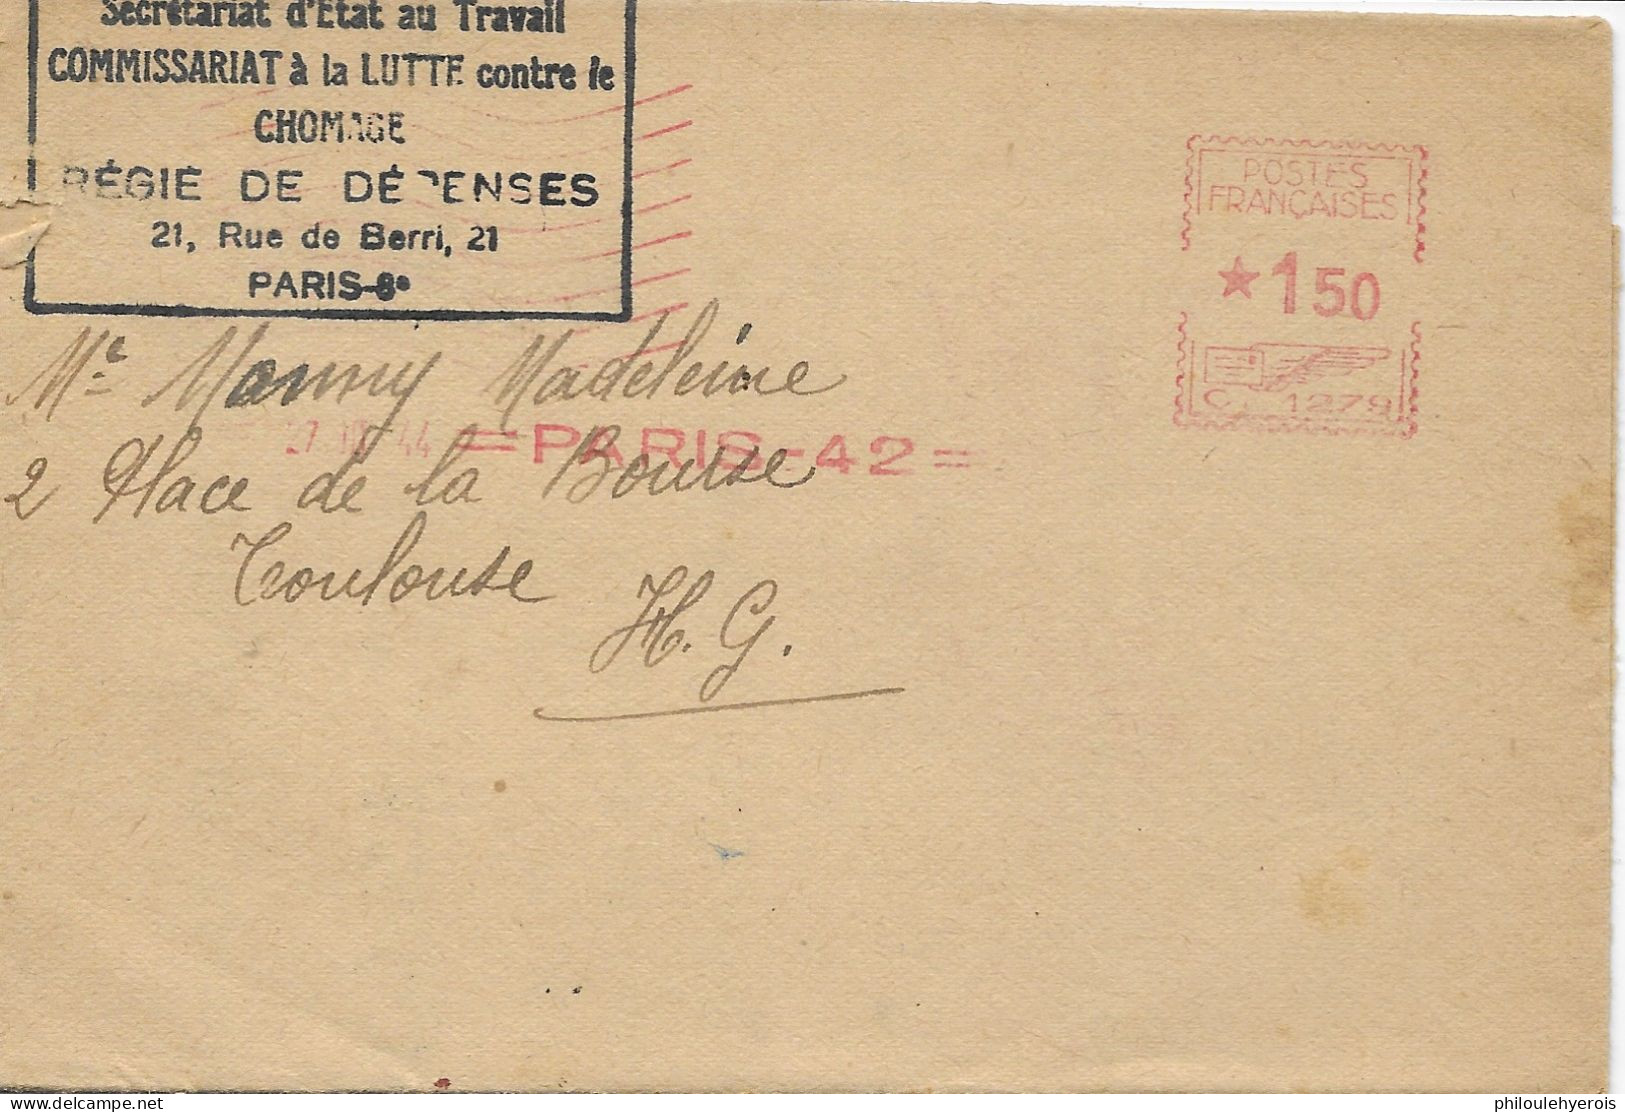 Secrétariat d'Etat au Travail
COMMISSARIAT à la LUTTE contre le
CHOMAGE
RÉGIE DE DÉPENSES
21, Rue de Berri, 21
PARIS-8e
POSTES
FRANÇAISES
★150
C. 1279
Me Madeleine
44 =PARIS-42=
2 Place de la Bourse
Toulouse
H. G.
delcampe.net
philoulehyerois